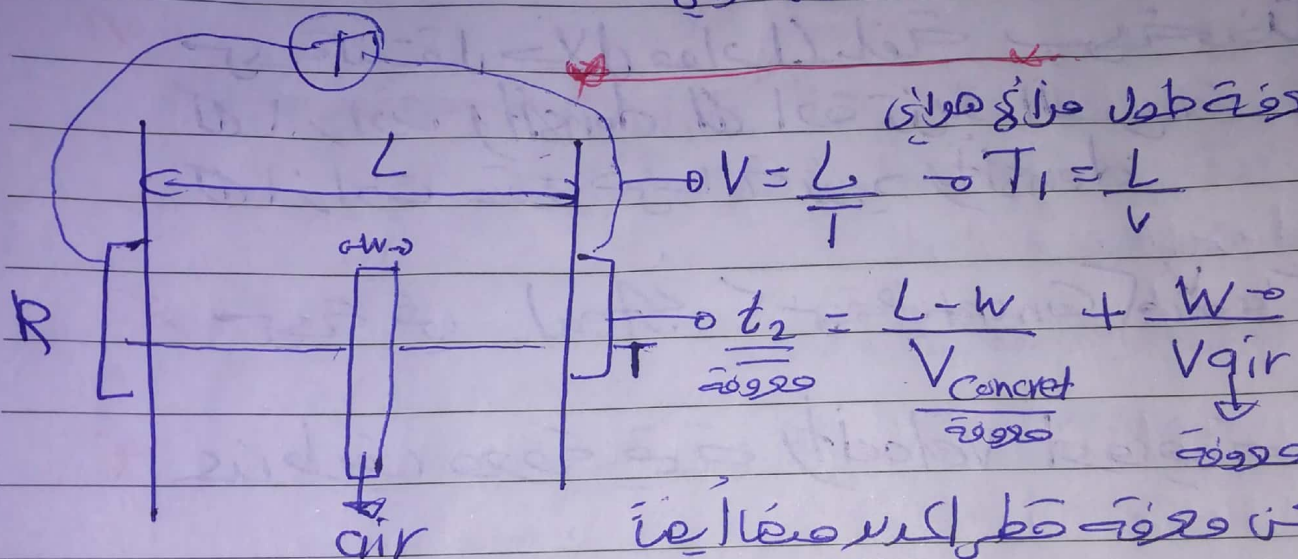 T
معرفة طول فراغ هوائي
L
V = L/T → T₁ = L/V
←W→
R
T
t₂ = (L-W)/V Concret + W/V air
معروفة
معروفة
معروفة
air
معرفة قطر الحديد